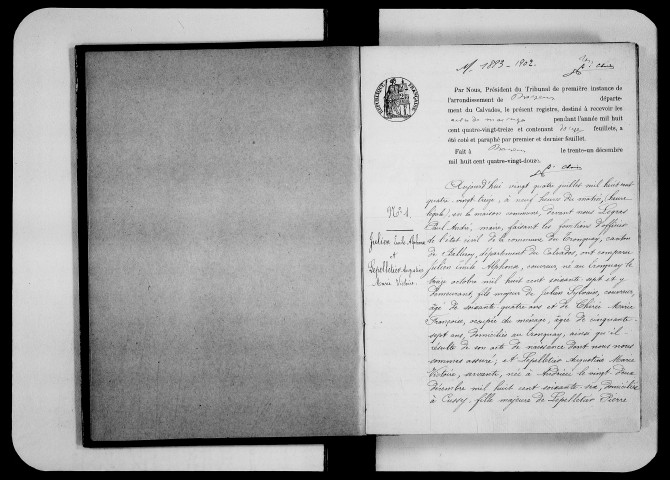 M. 1893-1902.
RÉPUBLIQUE FRANÇAISE
Par Nous, Président du Tribunal de première instance de
l'arrondissement de Bayeux départe-
ment du Calvados, le présent registre, destiné à recevoir les
actes de mariage pendant l'année mil huit
cent quatre-vingt-treize et contenant feuillets, a
été coté et paraphé par premier et dernier feuillet.
Fait à Bayeux le trente-un décembre
mil huit cent quatre-vingt-douze.
N° 1.
Julien Emile Alphonse
et
Lepelletier Augustine
Marie Victoire.
Aujourd'hui vingt quatre juillet mil huit cent
quatre-vingt treize, à neuf heures du matin, (heure
légale), en la maison commune, devant nous Legras
Paul André, maire, faisant les fonctions d'officier
de l'état civil de la commune du Tronquay, canton
de Balleroy, département du Calvados, ont comparu
Julien Emile Alphonse, couvreur, né au Tronquay le
treize octobre mil huit cent soixante-sept et y
demeurant, fils majeur de Julien Sylvain, couvreur,
âgé de soixante-quatre ans et de Marie
Françoise, occupée du ménage, âgée de cinquante-
sept ans, domiciliés au Tronquay, ainsi qu'il
résulte de son acte de naissance dont nous nous
sommes assuré; et Lepelletier Augustine Marie
Victoire, servante, née à le vingt-deux
décembre mil huit cent soixante-six, domiciliée
à Cussy, fille majeure de Lepelletier Pierre